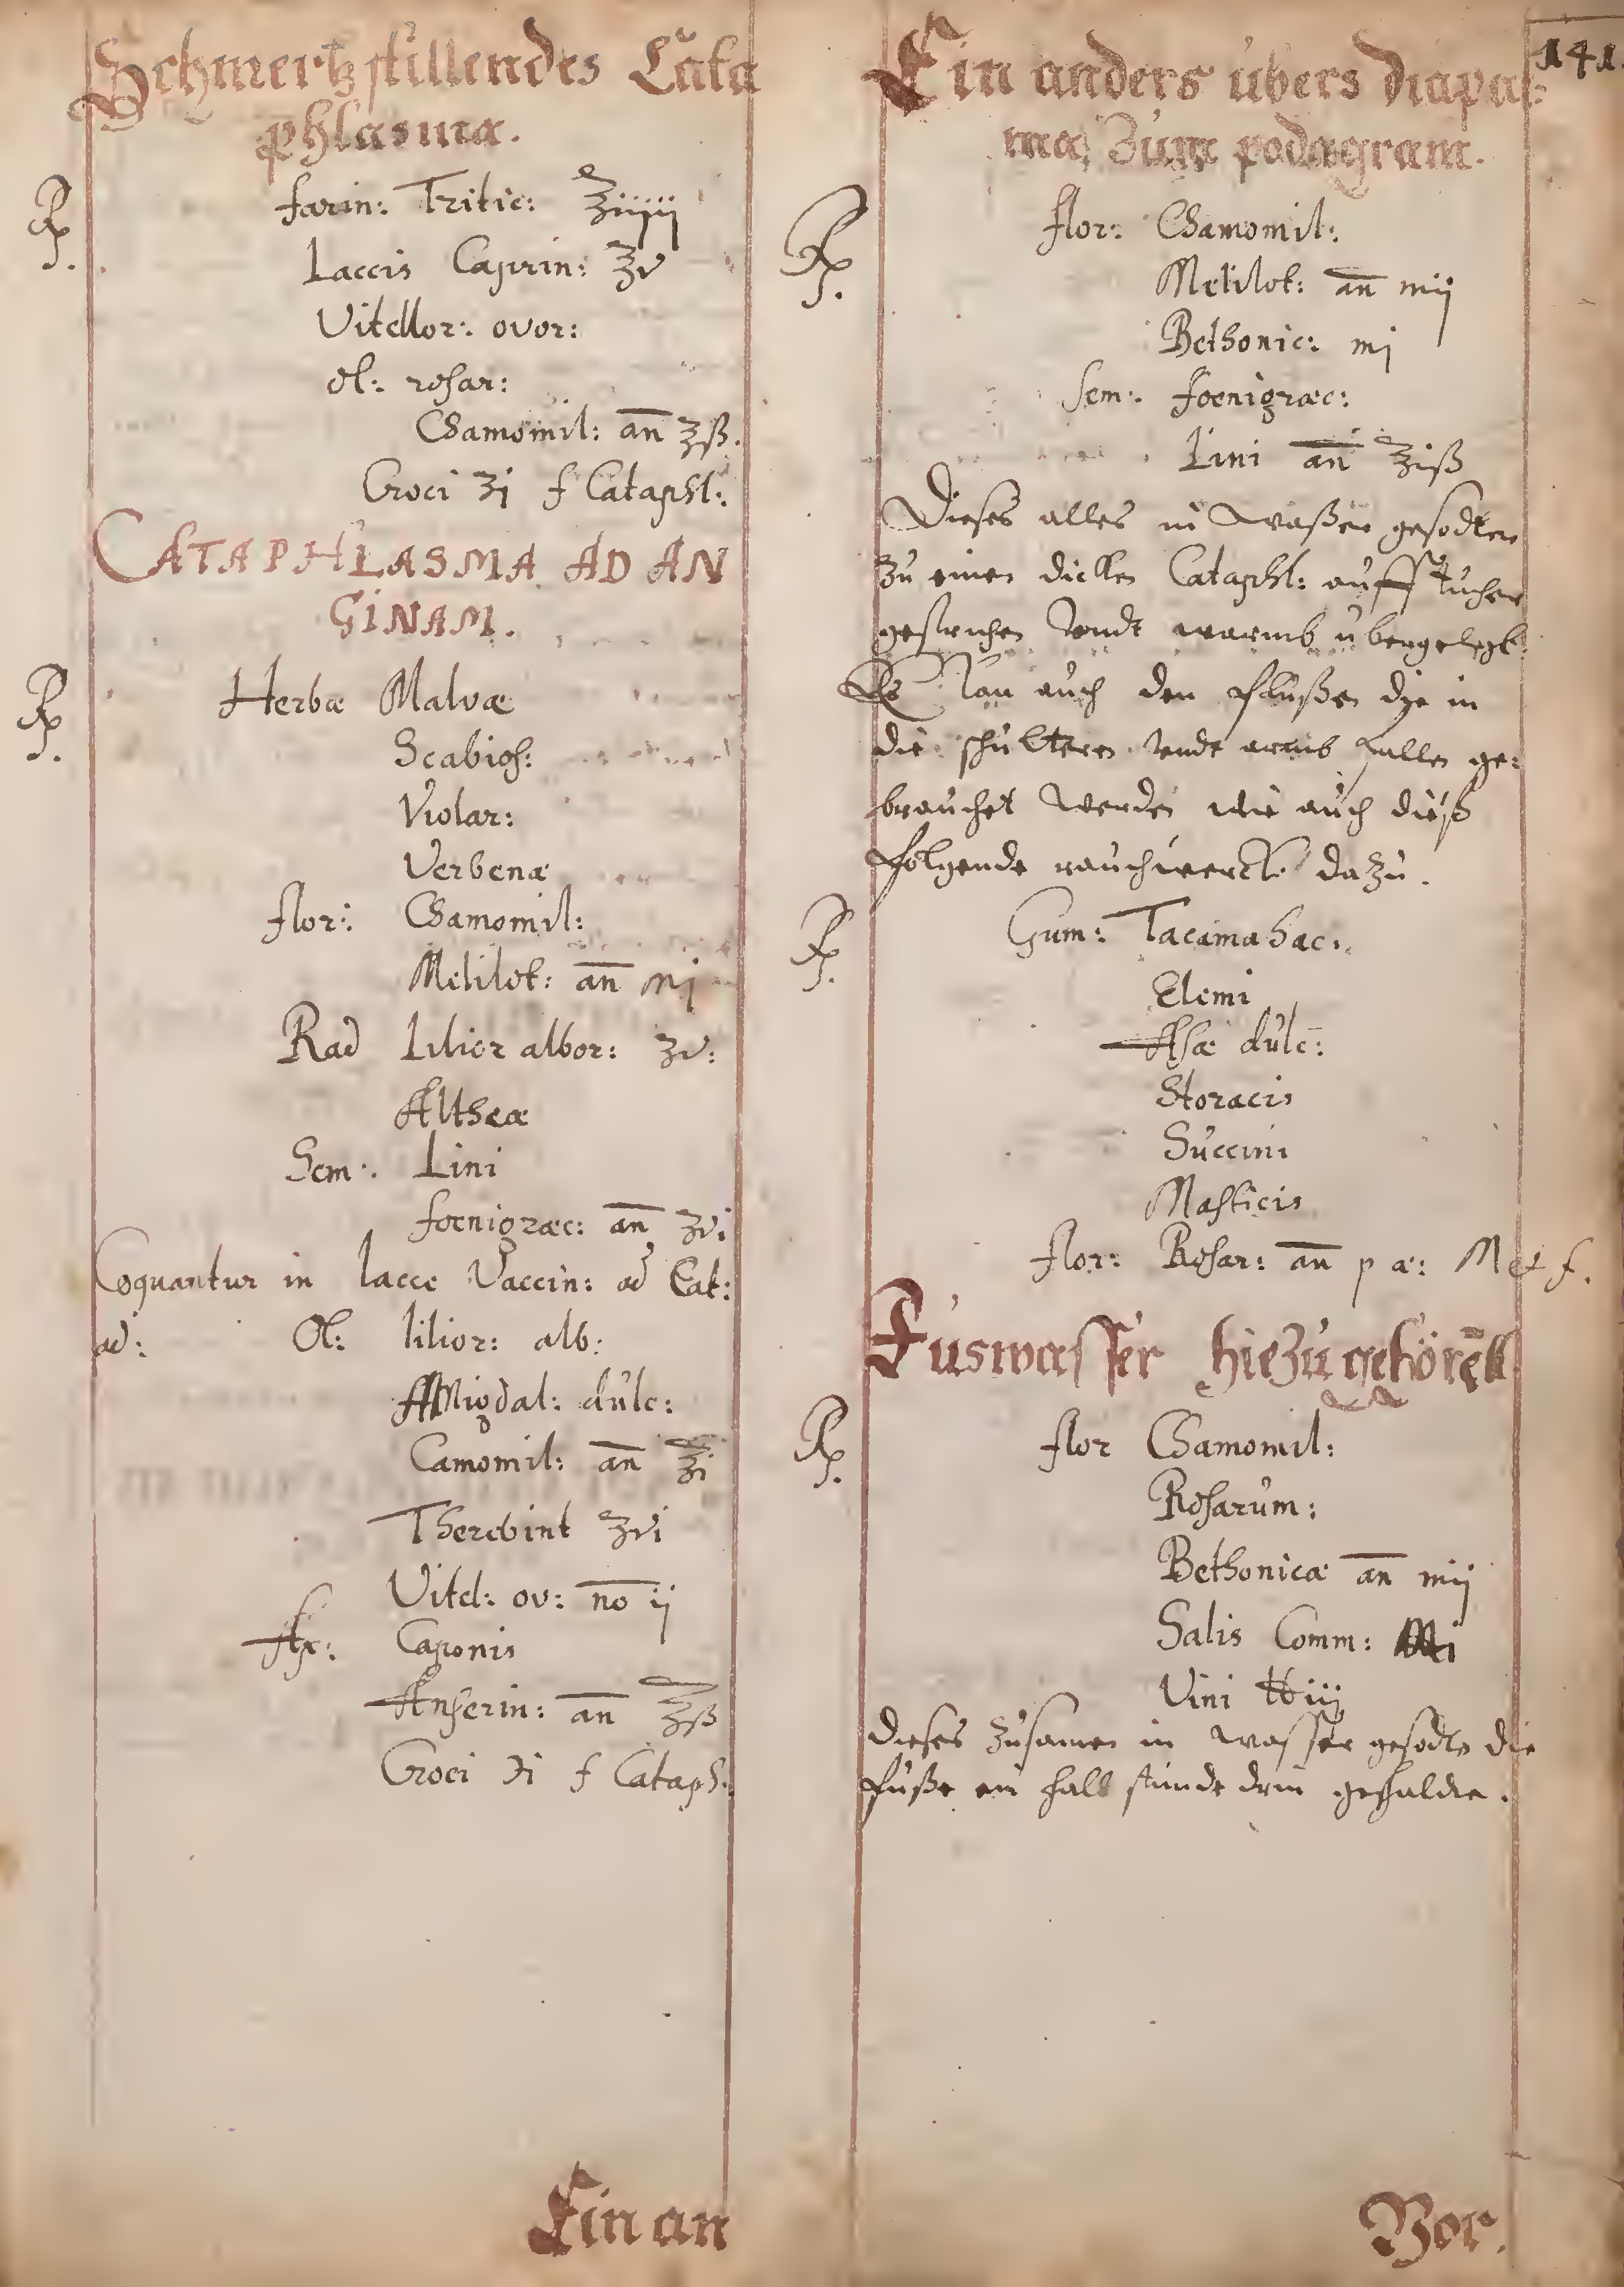 Schmertzstillendes Cata
phlasma.
℞.
farin: Tritic: ℥iiij
Laccis Caprin: ℥v
Vitellor: ovor:
Ol: rosar:
Chamomil: an̄ ℥ß.
Croci ʒi f Cataphl:
CATAPHLASMA AD AN
GINAM.
℞.
Herbæ Malvæ
Scabios:
Violar:
Verbenæ
flor: Chamomil:
Melilot: an̄ mj
Rad Lilior albor: ʒv:
Altheæ
Sem: Lini
foenigræc: an̄ ʒvi
Coquantur in lacce Vaccin: ad Cat:
ad: Ol: lilior: alb:
Amigdal: dulc:
Camomil: an̄ ℥i
Therebint ʒvi
Vitel: ov: no ij
Ax: Caponis
Anserin: an̄ ℥ß
Croci ℈i f Cataph:
Ein an
141.
Ein anders übers diapas=
ma, Zum podagram.
℞.
flor: Chamomil:
Melilot: an̄ mij
Bethonic: mj
Sem: foenigræc:
Lini an̄ ℥iß
Dieses alles in waßer gesodten
zu einen dicken Cataphl: auff tucher
gestrichen vndt warmb übergelegt.
Es kan auch den flüßen die in
die schulteren vndt armb fallen ge:
brauchet werden wie auch dieß
folgende rauchwerck dazu.
℞.
Gum: Tacamahac:
Elemi
Asæ dulc:
Storacis
Succini
Masticis
flor: Rosar: an̄ p æ: M et f.
Fuswasser hiezu gehörend
℞.
flor Chamomil:
Rosarum:
Bethonicæ an̄ mij
Salis Comm: Mi
Vini ℔iij
dieses zusamen in wasser gesodten die
füße ein halb stunde drin gehalden.
Vor.